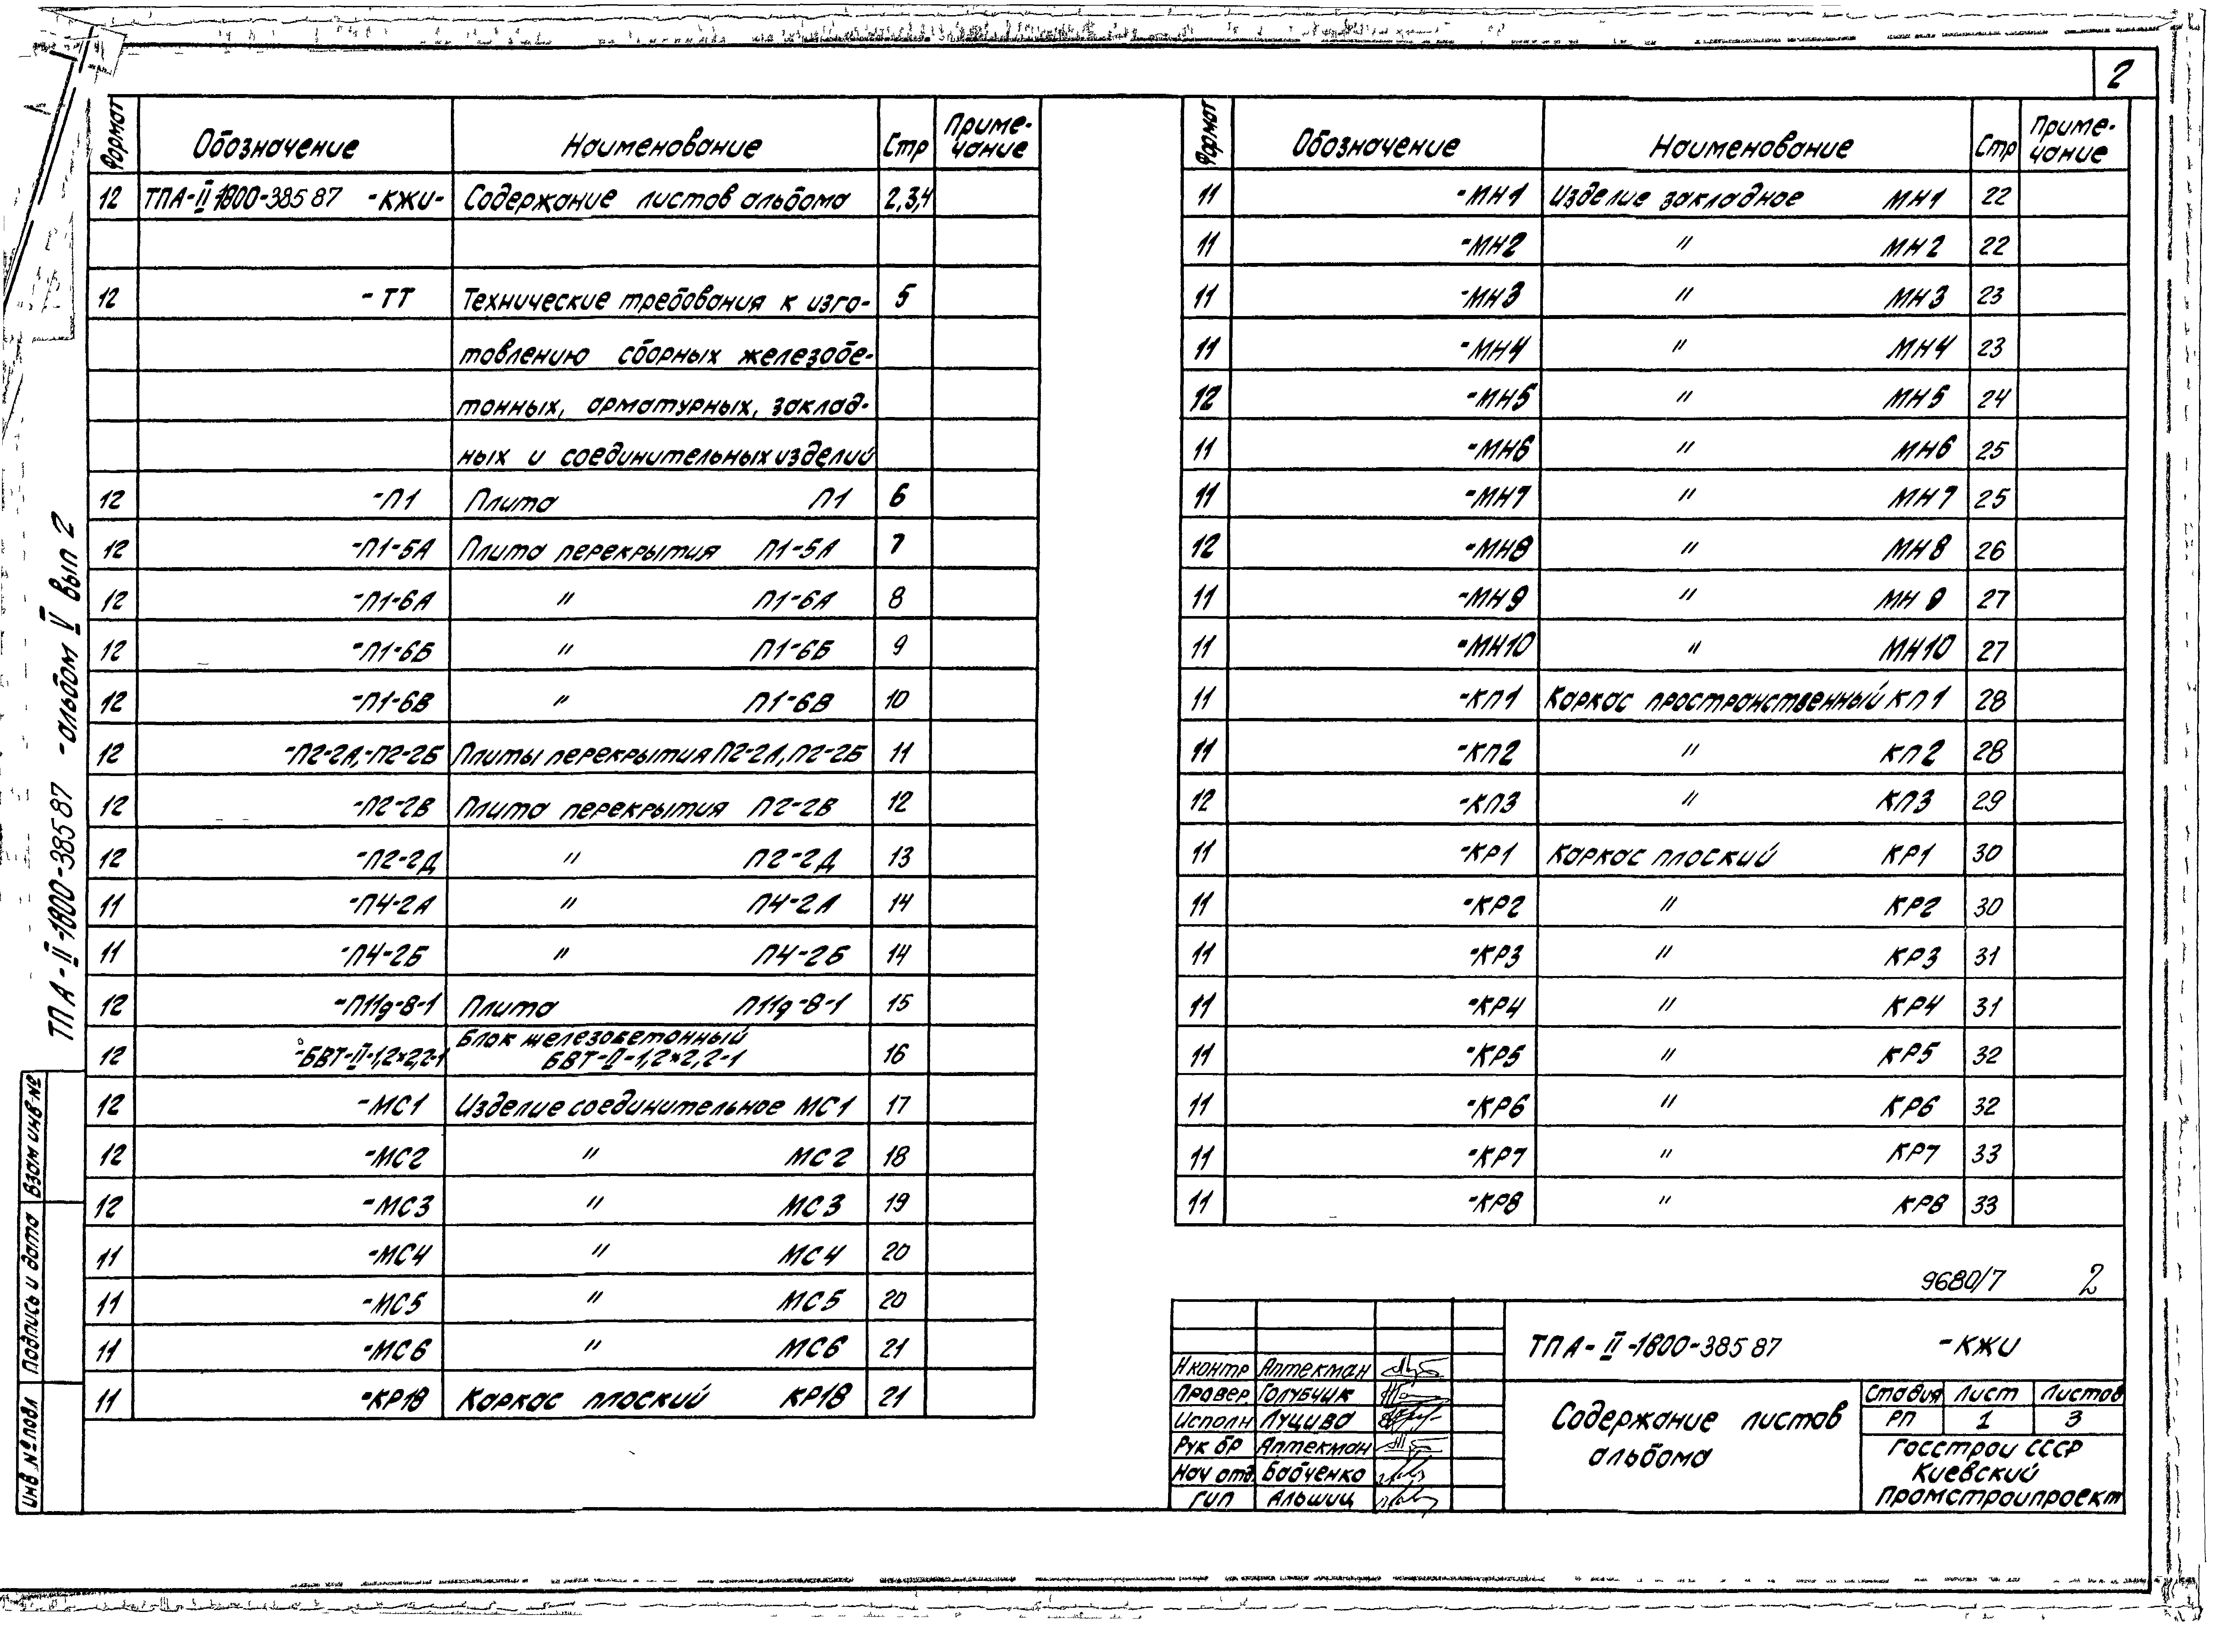 2
Формат Обозначение Наименование Стр Приме-
чание
12 ТПА-II-1800-385 87 -КЖИ- Содержание листов альбома 2,3,4
12 -ТТ Технические требования к изго- 5
товлению сборных железобе-
тонных, арматурных, заклад-
ных и соединительных изделий
12 -П1 Плита П1 6
12 -П1-5А Плита перекрытия П1-5А 7
12 -П1-6А " П1-6А 8
12 -П1-6Б " П1-6Б 9
12 -П1-6В " П1-6В 10
12 -П2-2А,-П2-2Б Плиты перекрытия П2-2А, П2-2Б 11
12 -П2-2В Плита перекрытия П2-2В 12
12 -П2-2Д " П2-2Д 13
11 -П4-2А " П4-2А 14
11 -П4-2Б " П4-2Б 14
12 -П11д-8-1 Плита П11д-8-1 15
12 -БВТ-II-1,2×2,2-1 Блок железобетонный
БВТ-II-1,2×2,2-1 16
12 -МС1 Изделие соединительное МС1 17
12 -МС2 " МС2 18
12 -МС3 " МС3 19
11 -МС4 " МС4 20
11 -МС5 " МС5 20
11 -МС6 " МС6 21
11 -КР18 Каркас плоский КР18 21
Формат Обозначение Наименование Стр Приме-
чание
11 -МН1 Изделие закладное МН1 22
11 -МН2 " МН2 22
11 -МН3 " МН3 23
11 -МН4 " МН4 23
12 -МН5 " МН5 24
11 -МН6 " МН6 25
11 -МН7 " МН7 25
12 -МН8 " МН8 26
11 -МН9 " МН9 27
11 -МН10 " МН10 27
11 -КП1 Каркас пространственный КП1 28
11 -КП2 " КП2 28
12 -КП3 " КП3 29
11 -КР1 Каркас плоский КР1 30
11 -КР2 " КР2 30
11 -КР3 " КР3 31
11 -КР4 " КР4 31
11 -КР5 " КР5 32
11 -КР6 " КР6 32
11 -КР7 " КР7 33
11 -КР8 " КР8 33
9680/7 2
ТПА-II-1800-385 87 -КЖИ
Н контр Аптекман
Провер. Голубчик
Исполн Луцива
Рук бр Аптекман
Нач отд. Бабченко
ГИП Альшиц
Содержание листов
альбома
Стадия Лист Листов
РП 1 3
Госстрой СССР
Киевский
Промстройпроект
ТПА-II-1800-385 87 -альбом V вып 2
Взам инв №
Подпись и дата
Инв № подл